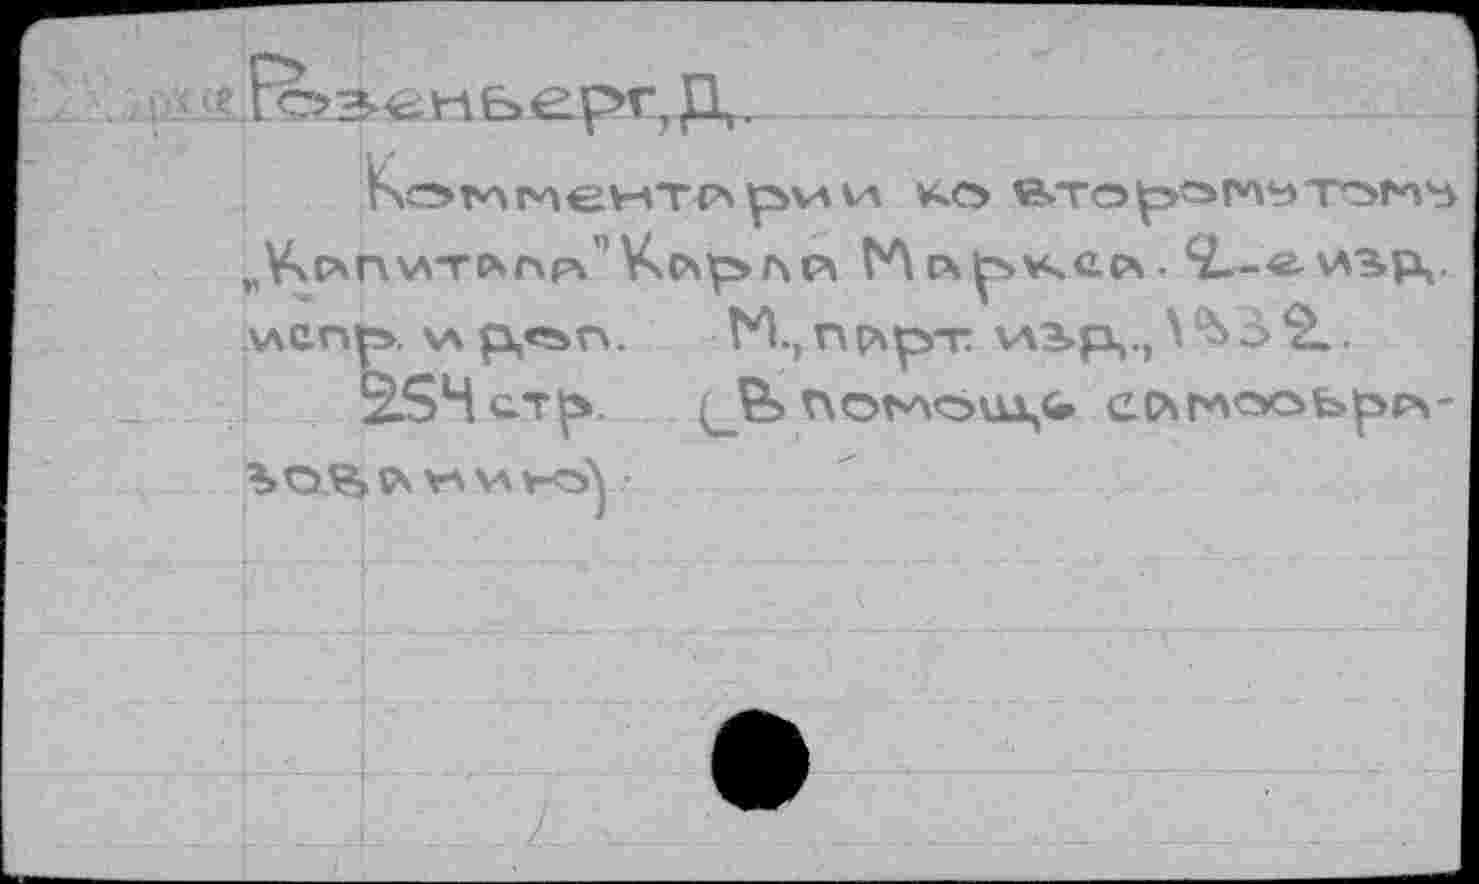 Розенберг, Д.
Комментарии ко второму тому
„Капитала" Карла Маркса. 2-е изд.
испр. и доп. М., парт. изд., 1932.
254 стр. (В помощь самообра-
зованию).